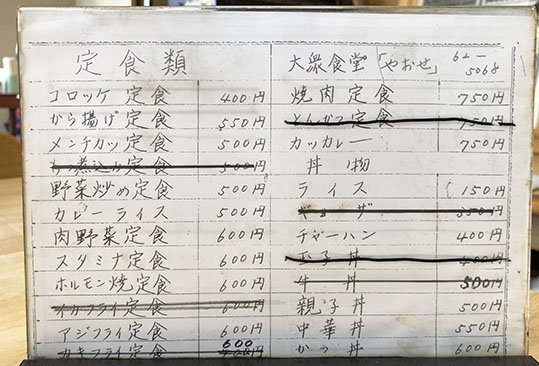 定食類
コロッケ定食 400円
から揚げ定食 550円
メンチカツ定食 500円
もつ煮込み定食 500円
野菜炒め定食 500円
カレーライス 500円
肉野菜定食 600円
スタミナ定食 600円
ホルモン焼定食 600円
イカフライ定食 600円
アジフライ定食 600円
カキフライ定食 600
大衆食堂「やおせ」 62-5068
焼肉定食 750円
とんかつ定食 750円
カツカレー 750円
丼物
ライス 150円
ギョーザ 350円
チャーハン 400円
玉子丼 400円
牛丼 500円
親子丼 500円
中華丼 550円
かつ丼 600円